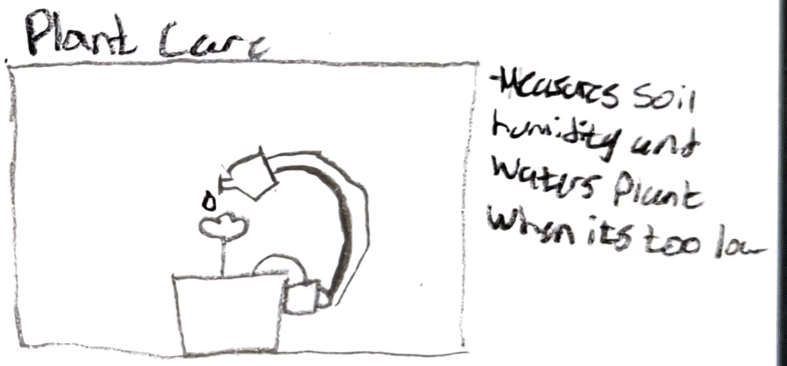 Plant Care
-Measures Soil
humidity and
Waters Plant
When its too low